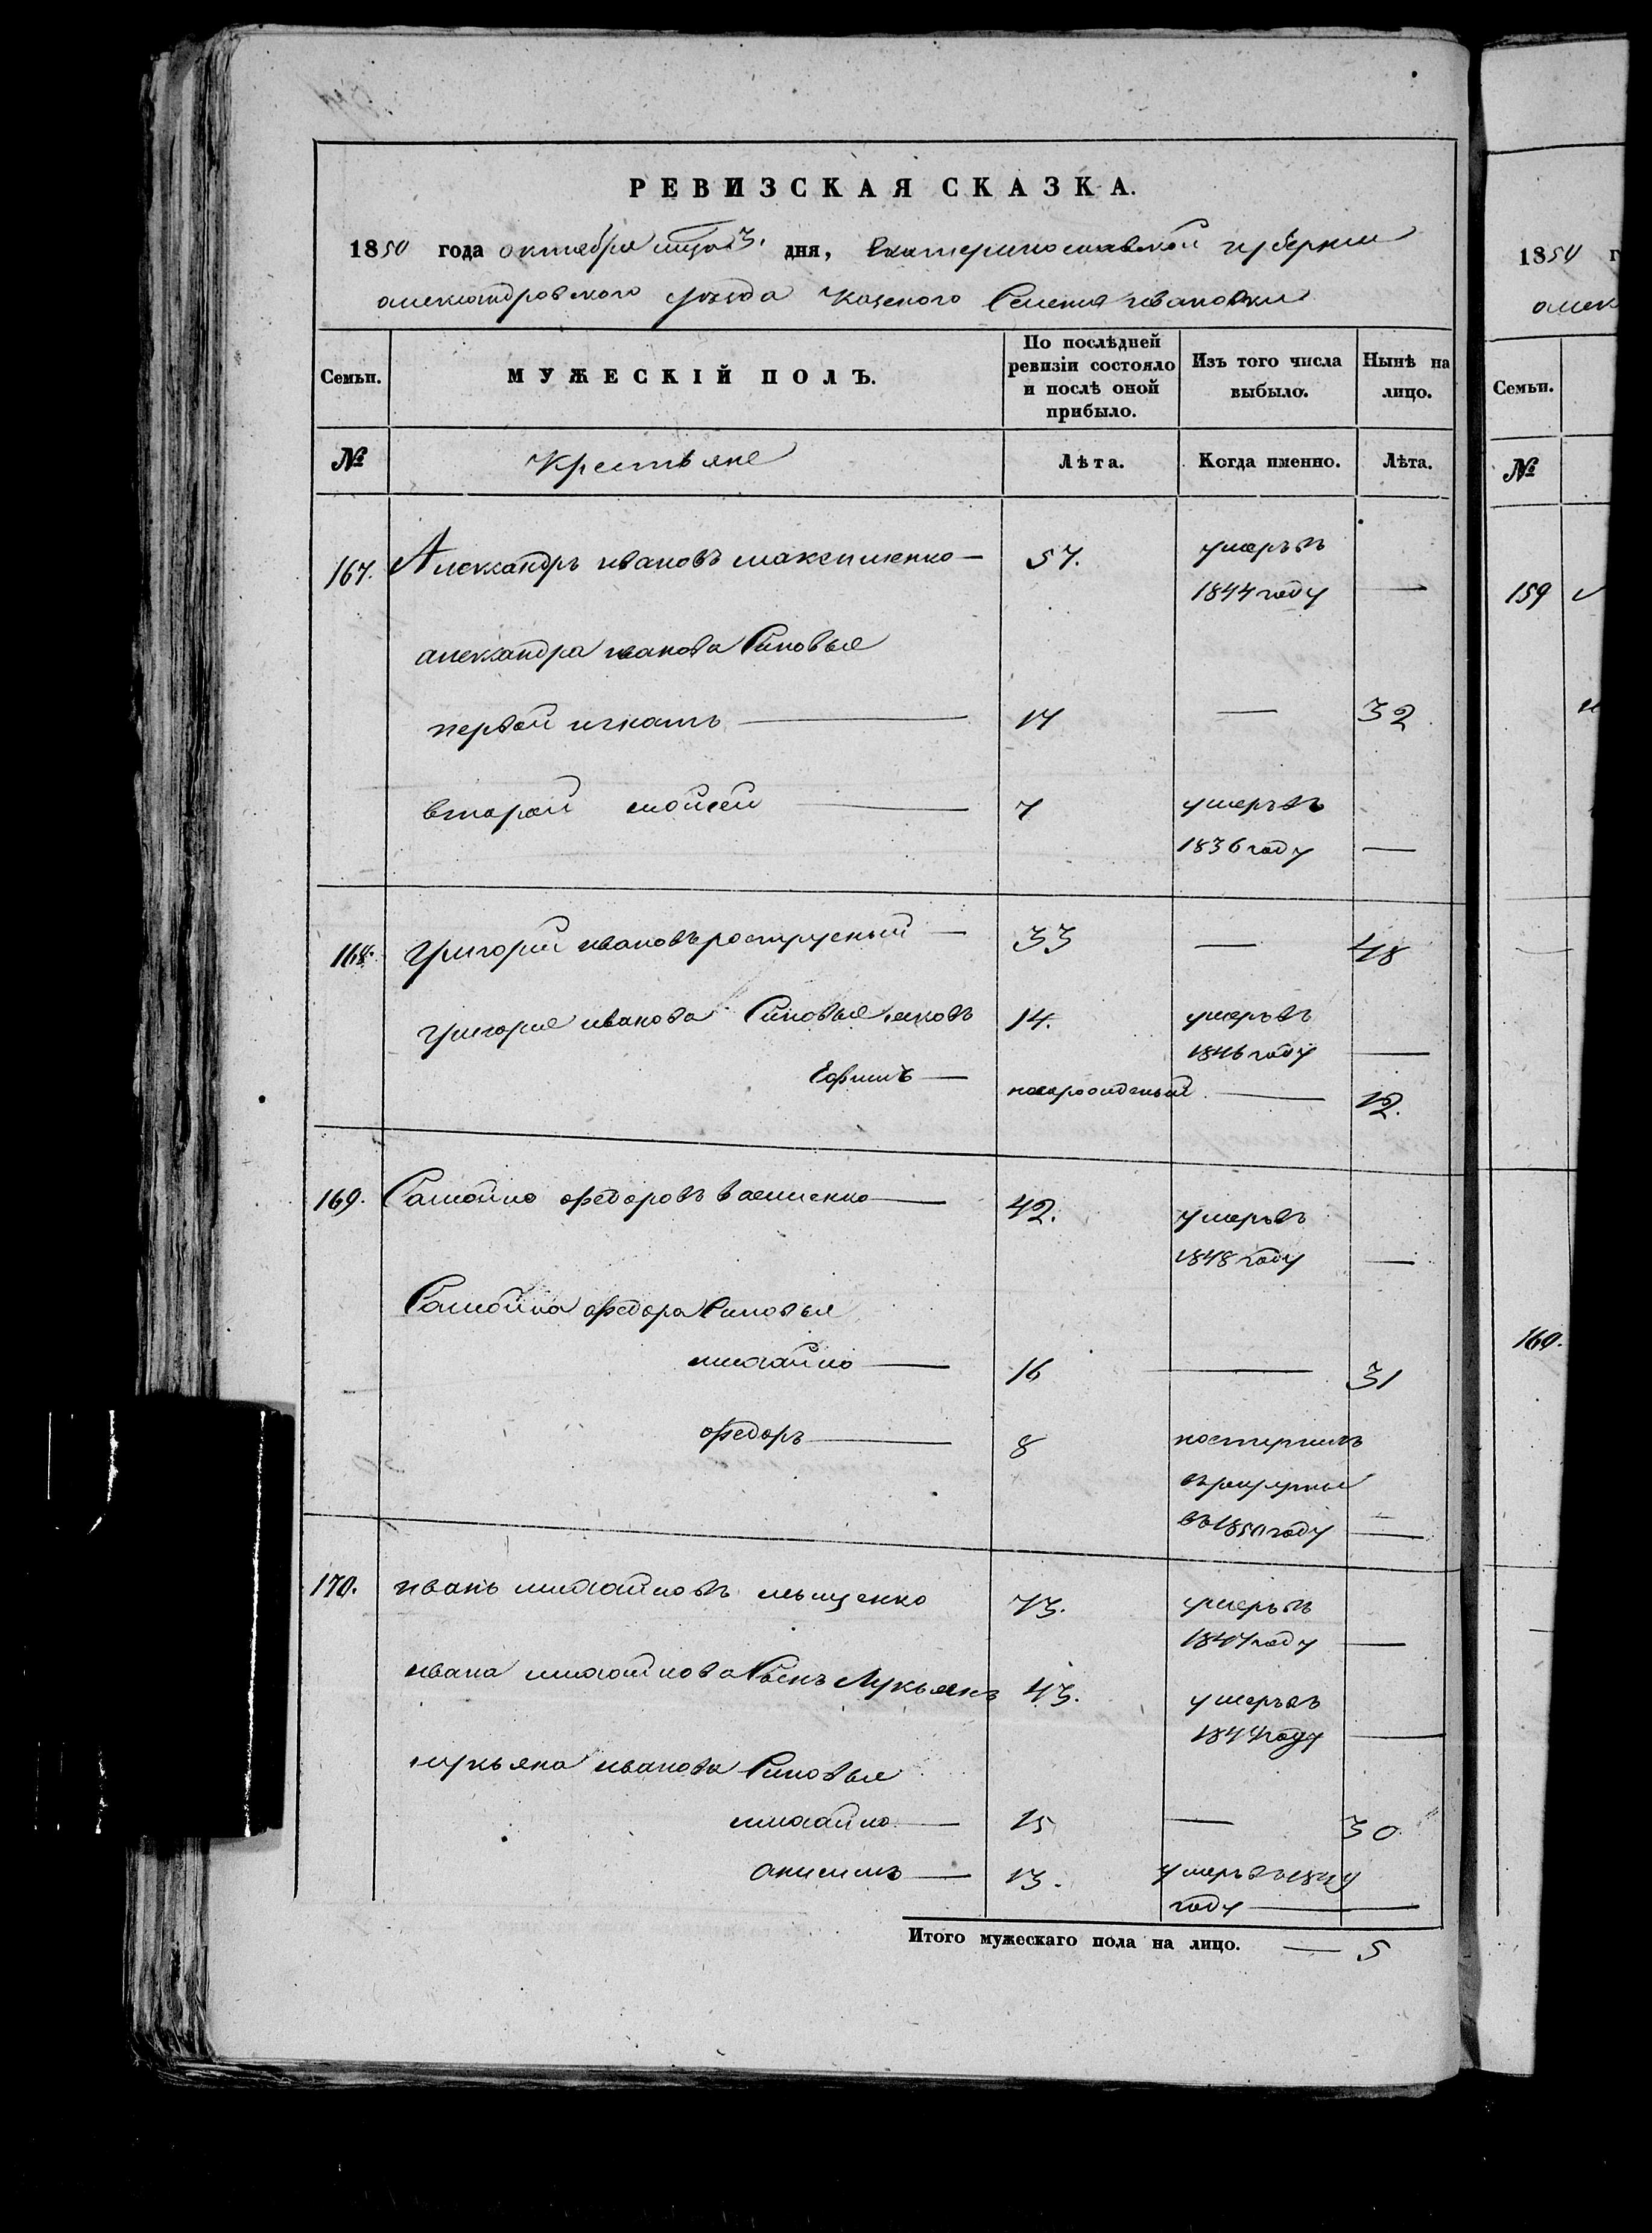 РЕВИЗСКАЯ СКАЗКА.
1850 года октября месяца 3. дня, Екатеринославской губернии
александровского уезда Казеного Селения ивановки
Семьи.
МУЖЕСКІЙ ПОЛЪ.
По послѣдней ревизіи состояло и послѣ оной прибыло.
Изъ того числа выбыло.
Нынѣ на лицо.
№
Крестьяне
Лѣта.
Когда именно.
Лѣта.
167. Александръ ивановъ максименко — 57. умеръ въ
1844 году —
александра иванова Синовья
первой игнатъ — 17 — 32
второй мойсей — 7 умеръ въ
1836 году —
168. Григорий ивановъ — 33 — 48
Григория иванова Синовья яковъ 14. умеръ въ
1846 году —
Ефимъ — новорожденый — 12.
169. Самойло федоровъ — 42. умеръ въ
1848 году —
Самойла федора Синовья
михайло — 16 — 31
федоръ — 8 поступилъ
въ рекруты
въ 1850 году —
170. иванъ михайловъ ильщенко 73. умеръ въ
1847 году —
ивана михайлова Сынъ Лукьянъ 43. умеръ въ
1844 году —
лукьяна иванова Синовья
михайло — 15 — 30
анисимъ — 13. умеръ въ
году —
Итого мужескаго пола на лицо. — 5
1850 г
алек
Семьи.
№
159
160.